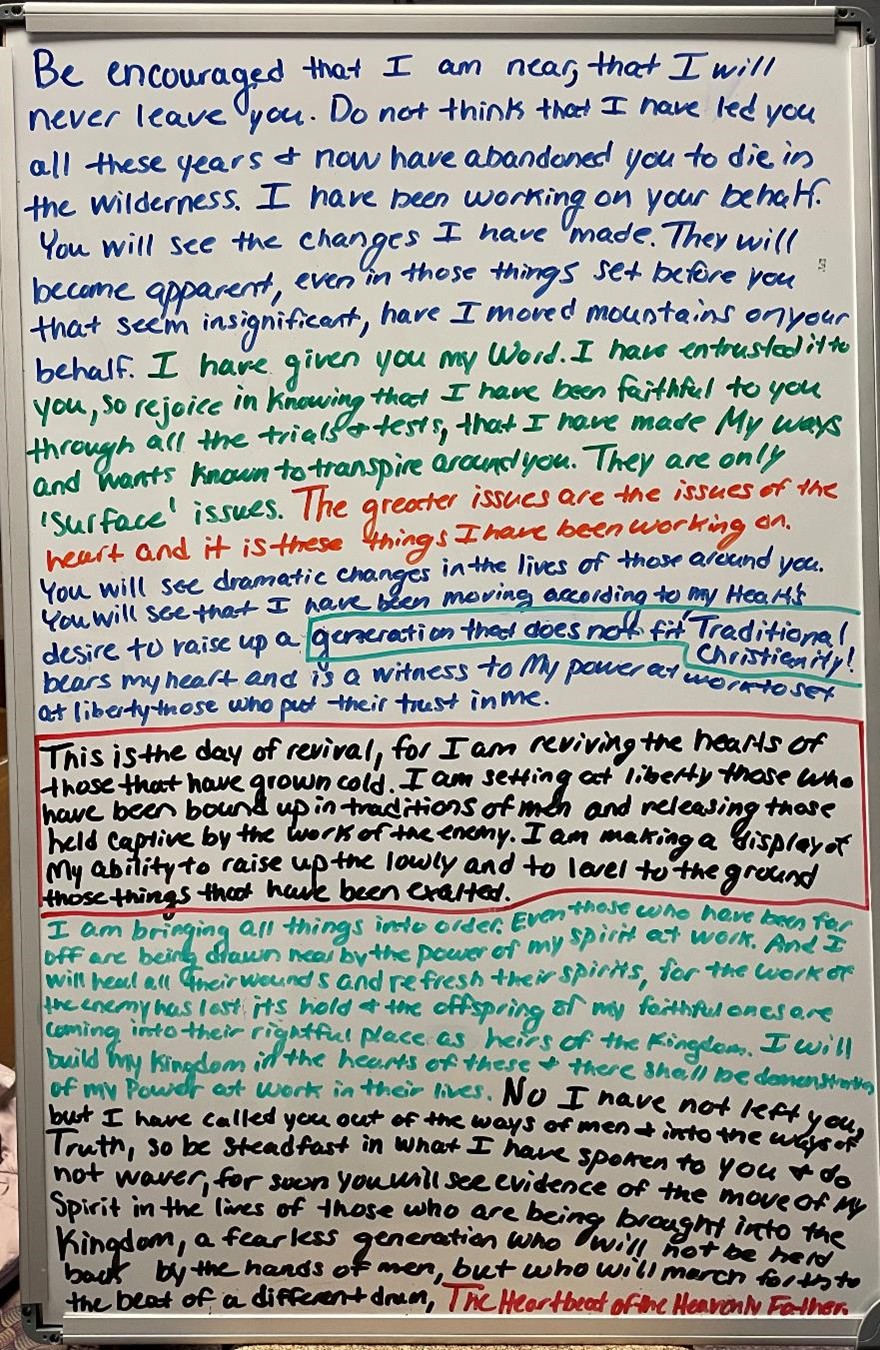 Be encouraged that I am near, that I will
never leave you. Do not think that I have led you
all these years & now have abandoned you to die in
the wilderness. I have been working on your behalf.
You will see the changes I have made. They will
become apparent, even in those things set before you
that seem insignificant, have I moved mountains on your
behalf. I have given you my Word. I have entrusted it to
you, so rejoice in knowing that I have been faithful to you
through all the trials & tests, that I have made My ways
and wants known to transpire around you. They are only
'surface' issues. The greater issues are the issues of the
heart and it is these things I have been working on.
You will see dramatic changes in the lives of those around you.
You will see that I have been moving according to my Heart's
desire to raise up a generation that does not fit Traditional
Christianity!
bears my heart and is a witness to My power at work to set
at liberty those who put their trust in me.
This is the day of revival, for I am reviving the hearts of
those that have grown cold. I am setting at liberty those who
have been bound up in traditions of men and releasing those
held captive by the work of the enemy. I am making a display of
My ability to raise up the lowly and to level to the ground
those things that have been exalted.
I am bringing all things into order. Even those who have been far
off are being drawn near by the power of my spirit at work. And I
will heal all their wounds and refresh their spirits, for the work of
the enemy has lost its hold & the offspring of my faithful ones are
coming into their rightful place as heirs of the Kingdom. I will
build my Kingdom in the hearts of these & there shall be demonstration
of my Power at work in their lives. No I have not left you,
but I have called you out of the ways of men & into the ways of
Truth, so be steadfast in what I have spoken to you & do
not waver, for soon you will see evidence of the move of My
Spirit in the lives of those who are being brought into the
Kingdom, a fearless generation who will not be held
back by the hands of men, but who will march forth to
the beat of a different drum, The Heartbeat of the Heavenly Father.